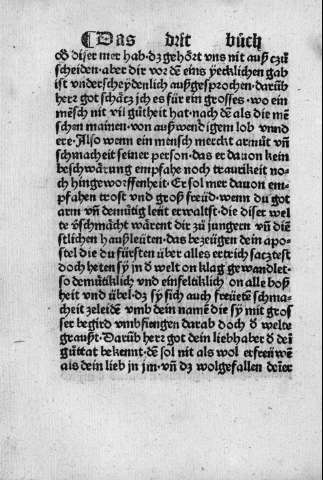 ¶Das drit bůch
od diser mer hab. dz gehört vns nit auß czů
scheiden. aber dir vor dē eins yecklichen gab
ist vnderscheydenlich außgesprochen. darūb
herr got schätz ich es für ein grosses. wo ein
mēsch nit vil gütheit hat. nach dē als die mē
schen mainen. von außwendigem lob vnnd
ere. Also wenn ein mensch merckt armůt vn̄
schmacheit seiner person. das er dauon kein
beschwärung empfahe noch traurikeit no-
ch hingeworffenheit. Er sol mer dauon em-
pfahen trost vnd groß freüd. wenn du got
arm vn̄ demůtig leüt erwalst. die diser wel
te v̄schmächt wärent dir zů jungern vn̄ diē
stlichen haußleüten. das bezeügen dein apo-
stel die du fürsten über alles ertrich sacztest
doch heten sy in d̄ welt on klag gewandlet.
so demůtiklich vnd einfeltiklich on alle boß
heit vnd übel. dz sy sich auch freüetē schma-
cheit zeleidē vmb dein namē die sy mit gros
ser begird vmbfiengen darab doch d̄ welte
graußt. Darūb herr got dein liebhaber d̄ dei
gůttat bekennt. dē sol nit als wol erfreüwē
als dein lieb in jm. vn̄ dz wolgefallen deīer